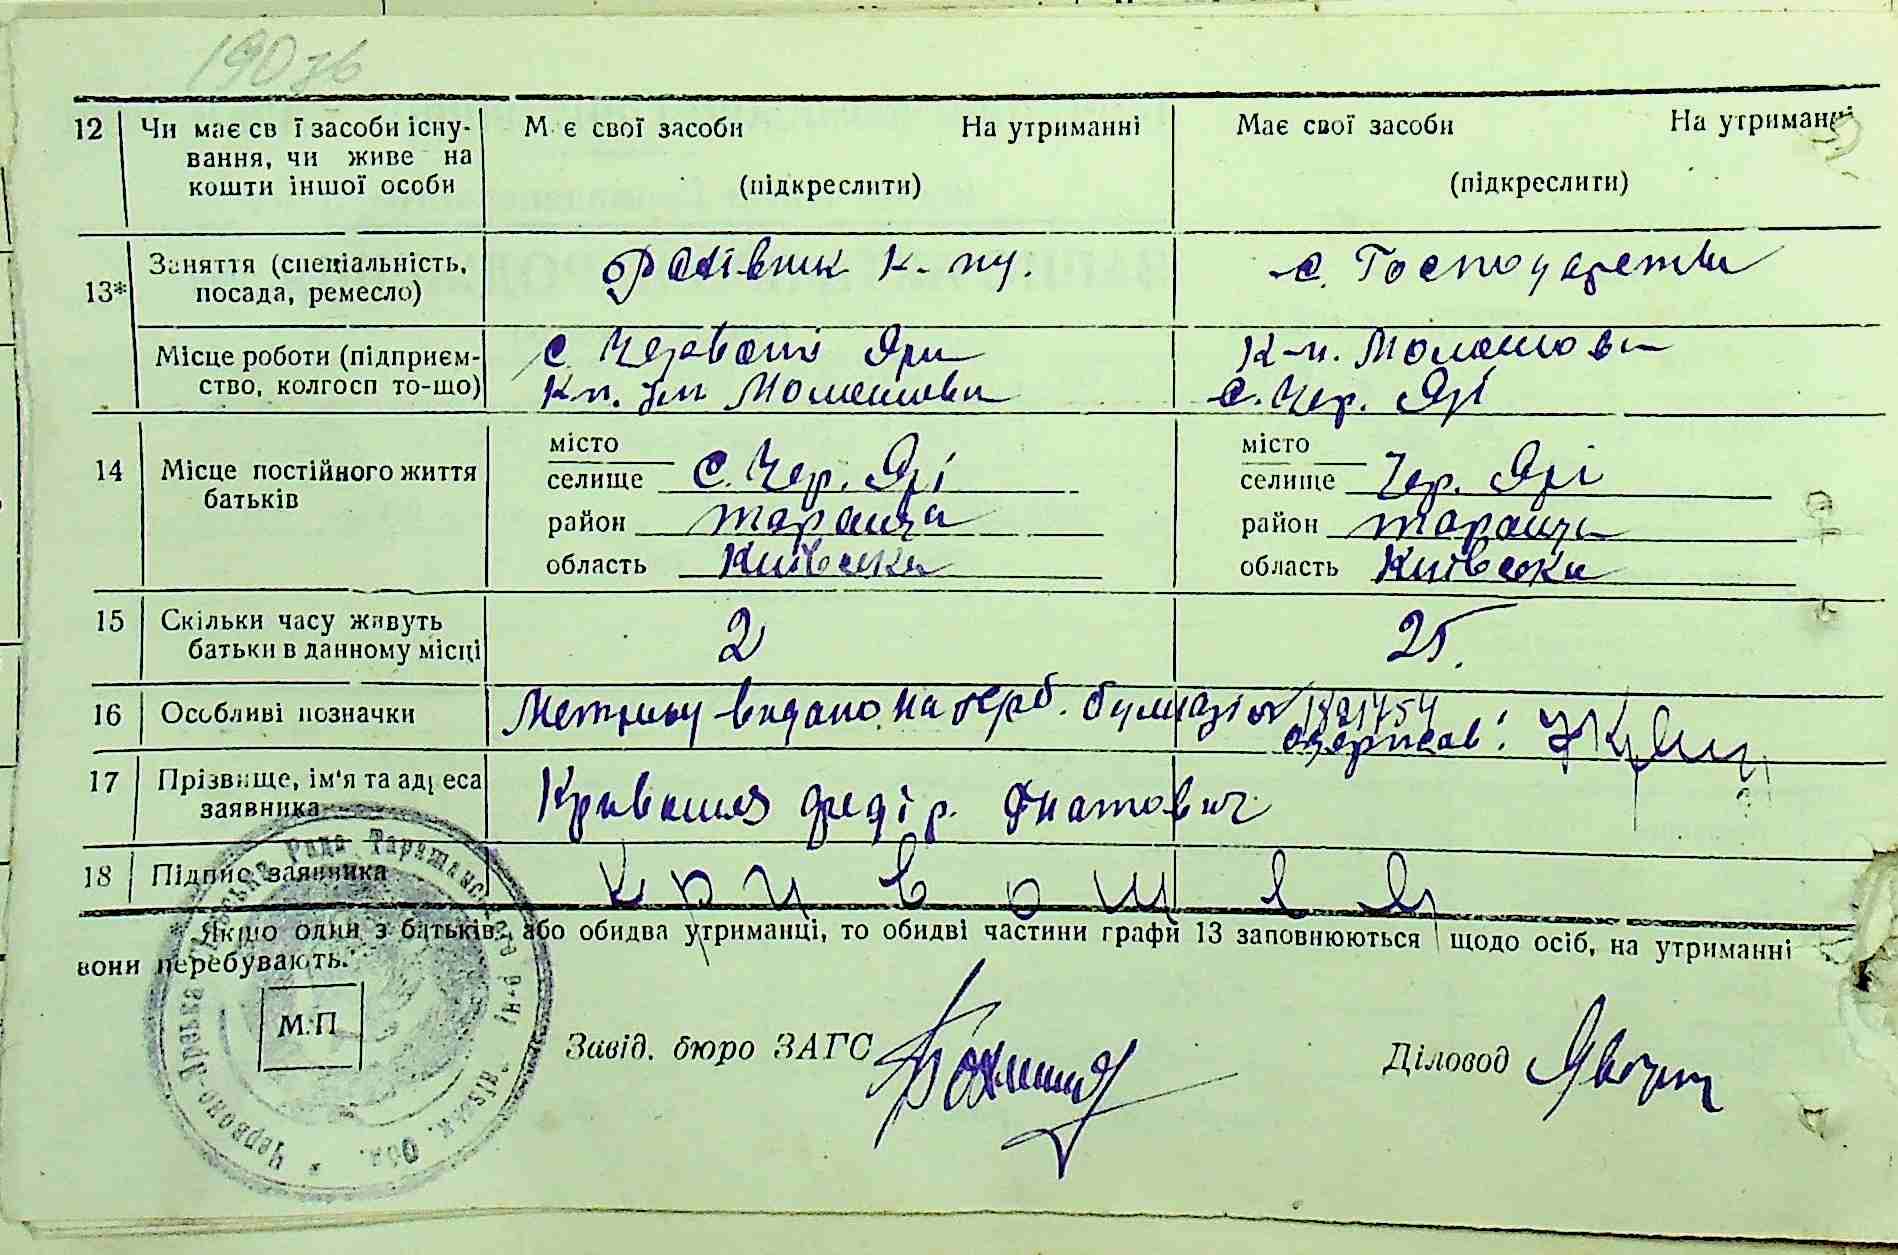 190 зв
12 Чи має св ї засоби існу- М є свої засоби На утриманні Має свої засоби На утриманні
вання, чи живе на
кошти іншої особи (підкреслити) (підкреслити)
Заняття (спеціальність, К. с. Господарства
13* посада, ремесло)
Місце роботи (підприєм- с. Червоні Яри К-п. Молотова
ство, колгосп то-що) Кп. ім Молотова с. Чер. Ярі
місто місто
14 Місце постійного життя селище с. Чер. Ярі селище Чер. Ярі
батьків район Тараща район Тараща
область Київська область Київська
15 Скільки часу живуть 2 25.
батьки в данному місці
16 Особливі позначки Метрику видано на герб. бумазі 1821754
одержав:
17 Прізвище, ім'я та адреса Кривошия Федір. Гнатович
заявника
18 Підпис заявника Кривошея
* Якщо один з батьків або обидва утриманці, то обидві частини графи 13 заповнюються щодо осіб, на утриманні
вони перебувають.
М.П Завід. бюро ЗАГС Діловод
Червоно-Ярська Рада Таращанс р-ну Обл. *